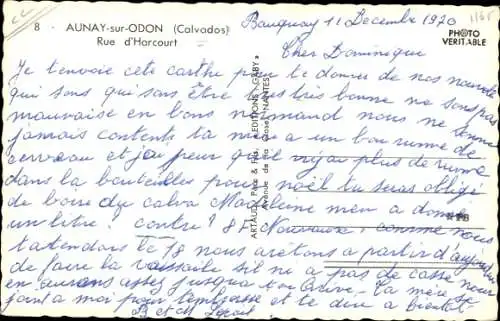 8 - AUNAY-sur-ODON (Calvados)
Rue d'Harcourt
PHOTO
VERITABLE
11 Decembre 1970
Cher Dominique
Je tenvoie cette carthe pour te donner de nos nouvelle
qui sons qui sans être tres bonne ne sons pas
mauvaise en bons normand nous ne somme
jamais contents ta mère a un bon rume de
cerveau et jai peur quel nai plus de rume
dans la bouteilles pour noël tu seras obligé
de boire du calva Madeleine men a donné
un litre. contre! 81 comme nous
tattendons le 18 nous arétons a partir d'aujourdui
de faire la vaisselle sil ni a pas de casse nous
en aurons assez jusqua ton arive. Ta mère se
joint a moi pour tembrasse et te dire a bientot
B et M
ARTAUD Père & Fils, EDITIONS "GABY"
NANTES